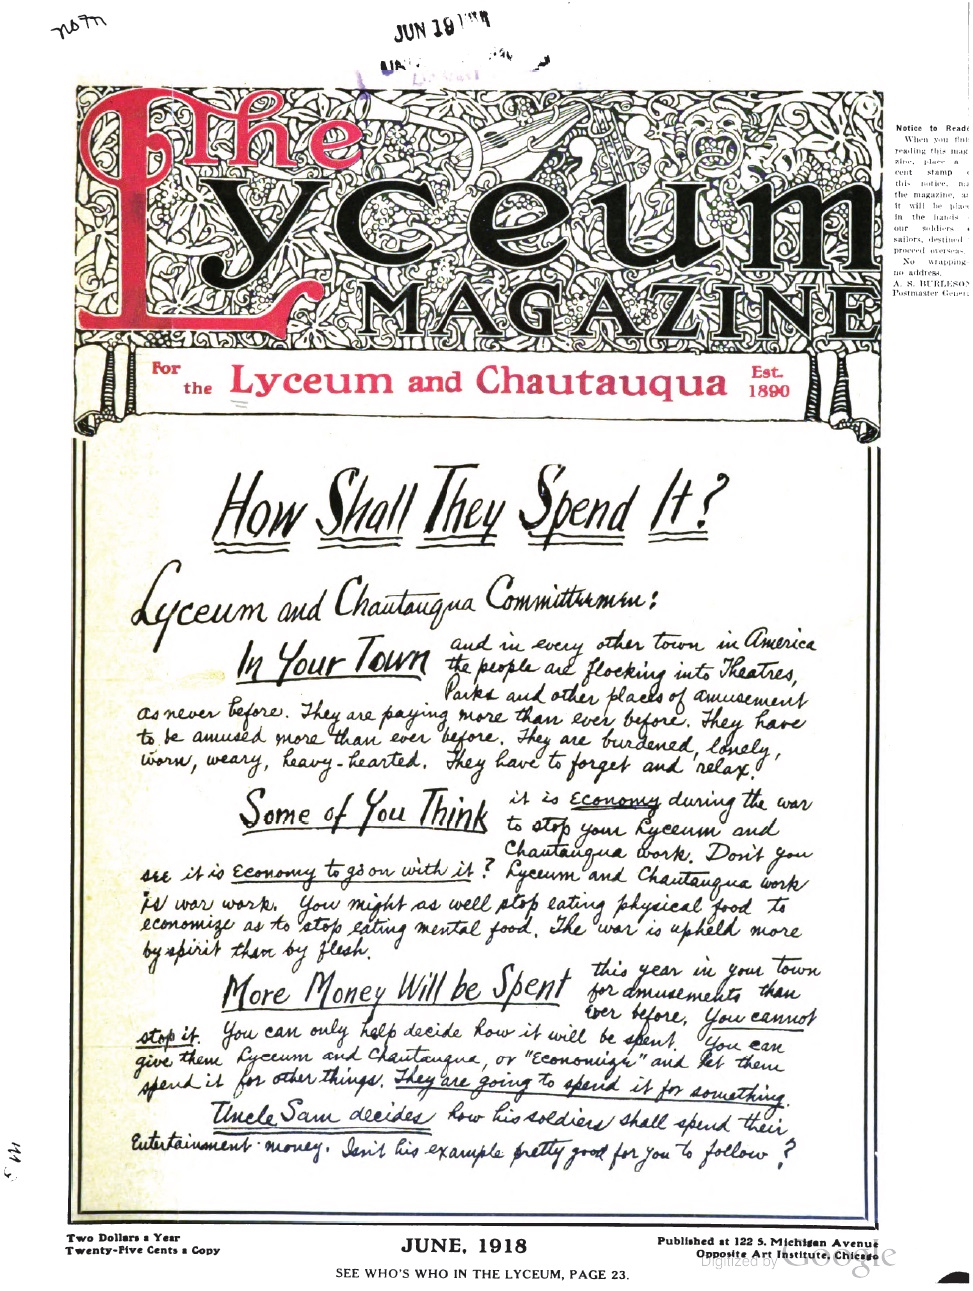 JUN 19
The
Lyceum
MAGAZINE
For the Lyceum and Chautauqua Est. 1890
Notice to Reade
When you fini
reading this mag
zine, place a
cent stamp
this notice, ma
the magazine, a
it will be plac
in the hands
our soldiers
sailors, destined
proceed overseas.
No wrapping
no address.
A. S. BURLESON
Postmaster Gener
How Shall They Spend It?
Lyceum and Chautauqua Committeemen:
In Your Town and in every other town in America
the people are flocking into Theatres,
Parks and other places of amusement
as never before. They are paying more than ever before. They have
to be amused more than ever before. They are burdened, lonely,
worn, weary, heavy-hearted. They have to forget and relax.
Some of You Think it is Economy during the war
to stop your Lyceum and
Chautauqua work. Don't you
see it is Economy to go on with it? Lyceum and Chautauqua work
is war work. You might as well stop eating physical food to
economize as to stop eating mental food. The war is upheld more
by spirit than by flesh.
More Money Will be Spent this year in your town
for amusements than
ever before. You cannot
stop it. You can only help decide how it will be spent. You can
give them Lyceum and Chautauqua, or "Economize" and let them
spend it for other things. They are going to spend it for something.
Uncle Sam decides how his soldiers shall spend their
Entertainment money. Isn't his example pretty good for you to follow?
Two Dollars a Year
Twenty-Five Cents a Copy
JUNE, 1918
Published at 122 S. Michigan Avenue
Opposite Art Institute, Chicago
Digitized by Google
SEE WHO'S WHO IN THE LYCEUM, PAGE 23.